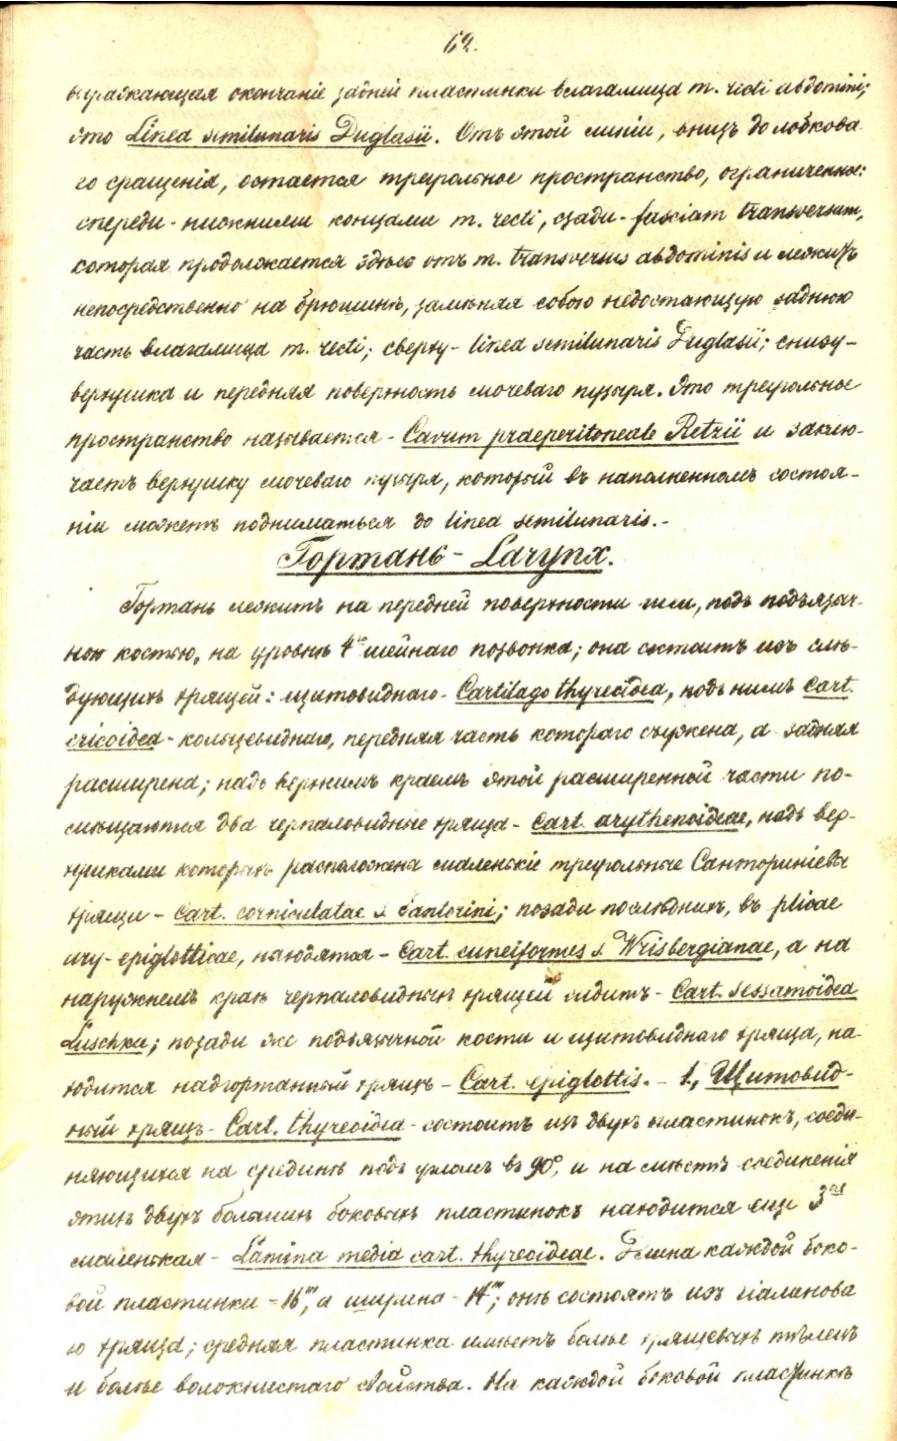 62.
выражающая окончаніе задней пластинки влагалища m. recti abdomini;
это Linea semilunaris Duglasii. Отъ этой линіи, внизъ до лобкова
го сращенія, остается треугольное пространство, ограниченное:
спереди - нижними концами m. recti, сзади - fasciam transversam,
которая продолжается здѣсь отъ m. transversus abdominis и лежитъ
непосредственно на брюшинѣ, замѣняя собою недостающую заднюю
часть влагалища m. recti; сверху - linea semilunaris Duglasii; снизу -
верхушка и передняя поверхность мочеваго пузыря. Это треугольное
пространство называется - Cavum praeperitoneale Retzii и заклю-
чаетъ верхушку мочеваго пузыря, который въ наполненномъ состоя-
ніи можетъ подниматься до linea semilunaris. -
Гортань - Larynx.
Гортань лежитъ на передней поверхности шеи, подъ подъязыч-
ной костью, на уровнѣ 4го шейнаго позвонка; она состоитъ изъ слѣ-
дующихъ хрящей: щитовиднаго - Cartilago thyreoidea, подъ нимъ Cart.
cricoidea - кольцевиднаго, передняя часть котораго съужена, а задняя
расширена; надъ верхнимъ краемъ этой расширенной части по-
мѣщаются два черпаловидные хряща - Cart. arythenoideae, надъ вер-
хушками которыхъ расположены маленькіе треугольные Санториніевы
хрящи - Cart. corniculatae s. Santorini; позади послѣднихъ, въ plicae
ary-epiglotticae, находятся - Cart. cuneiformes s. Wrisbergianae, а на
наружнемъ краѣ черпаловидныхъ хрящей сидитъ - Cart. sessamoidea
Luschka; позади же подъязычной кости и щитовиднаго хряща, на-
ходится надгортанный хрящъ - Cart. epiglottis. - 1, Щитовид-
ный хрящъ - Cart. thyreoidea - состоитъ изъ двухъ пластинокъ, соеди-
няющихся на срединѣ подъ угломъ въ 90°, и на мѣстѣ соединенія
этихъ двухъ большихъ боковыхъ пластинокъ находится еще 3я
маленькая - Lamina media cart. thyreoideae. Длина каждой боко-
вой пластинки - 16''', а ширина - 14'''; онѣ состоятъ изъ гіалинова
го хряща; средняя пластинка имѣетъ болѣе хрящевыхъ тѣлецъ
и болѣе волокнистаго свойства. На каждой боковой пластинкѣ